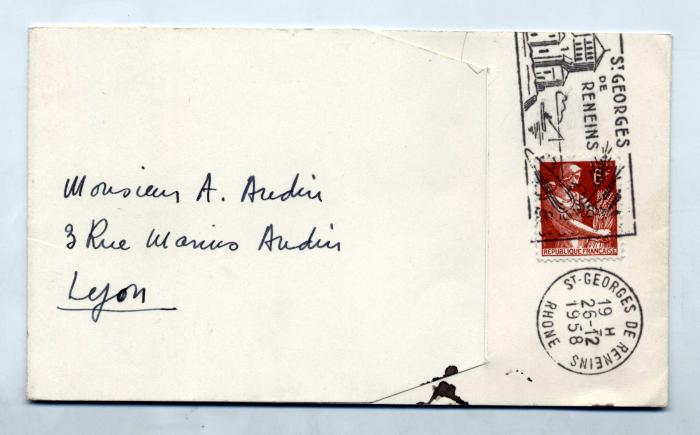 Monsieur A. Audin
3 Rue Marius Audin
Lyon
ST GEORGES
DE
RENEINS
REPUBLIQUE FRANÇAISE
ST-GEORGES DE RENEINS
19 H
26-12
1958
RHONE